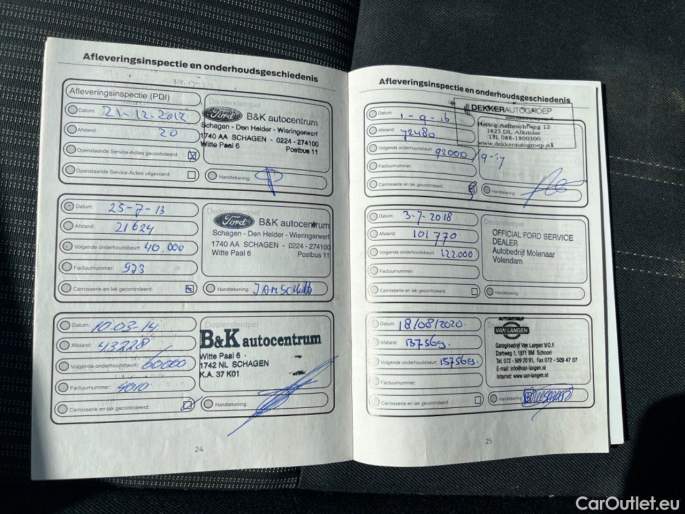 Afleveringsinspectie en onderhoudsgeschiedenis
Afleveringsinspectie (PDI)
Datum: 21-12-2012
Afstand: 20
Openstaande Service-Acties gecontroleerd
Openstaande Service-Acties uitgevoerd
Ford B&K autocentrum
Schagen - Den Helder - Wieringerwerf
1740 AA SCHAGEN - 0224 - 274100
Witte Paal 6 Postbus 11
Handtekening:
Datum: 25-7-13
Afstand: 21624
Volgende onderhoudsbeurt: 40.000
Factuurnummer: 973
Carrosserie en lak gecontroleerd:
Ford B&K autocentrum
Schagen - Den Helder - Wieringerwerf
1740 AA SCHAGEN - 0224 - 274100
Witte Paal 6 Postbus 11
Handtekening:
Datum: 10-03-14
Afstand: 43228
Volgende onderhoudsbeurt: 60000
Factuurnummer: 4010
Carrosserie en lak gecontroleerd:
B&K autocentrum
Witte Paal 6
1742 NL SCHAGEN
K.A. 37 K01
Handtekening:
24
Afleveringsinspectie en onderhoudsgeschiedenis
Datum: 1-9-16
Afstand: 72480
Volgende onderhoudsbeurt: 92000/9-17
Factuurnummer:
Carrosserie en lak gecontroleerd:
DEKKERAUTOGROEP
www.dekkerautogroep.nl
Handtekening:
Datum: 3-7-2018
Afstand: 101770
Volgende onderhoudsbeurt: 122.000
Factuurnummer:
Carrosserie en lak gecontroleerd:
OFFICIAL FORD SERVICE
DEALER
Autobedrijf Molenaar
Volendam
Handtekening:
Datum: 18/08/2020
Afstand:
Volgende onderhoudsbeurt:
Factuurnummer:
Carrosserie en lak gecontroleerd:
VAN LANGEN
Garagebedrijf Van Langen V.O.F.
Tel. 072 - 509 70 91, Fax 072 - 509 47 07
E-mail: info@van-langen.nl
Internet: www.van-langen.nl
Handtekening:
25
CarOutlet.eu